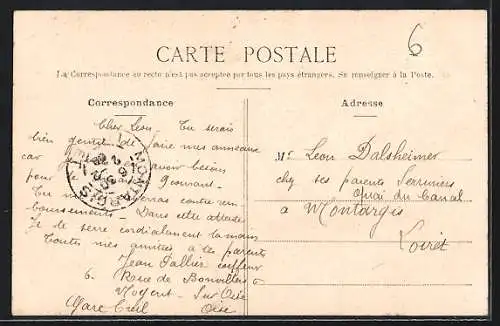 6
CARTE POSTALE
La Correspondance au recto n'est pas acceptée par tous les pays étrangers. Se renseigner à la Poste.
Correspondance
Cher Leon. Tu serais
bien gentil de faire mes anneaux
car avoir besoin
pour
Tu contre rem
boursements - Dans cette attente
Je te serre cordialement la main
Toutes mes amitiés à tes parents
Jean Pallier coiffeur
6. Rue de Bonvillers 6
Nogent - Sur Oise
Gare Creil Oise
MONTARGIS
Adresse
Mr Leon Dalsheimer
chez ses parents Serruriers
Quai du Canal
a Montargis
Loiret